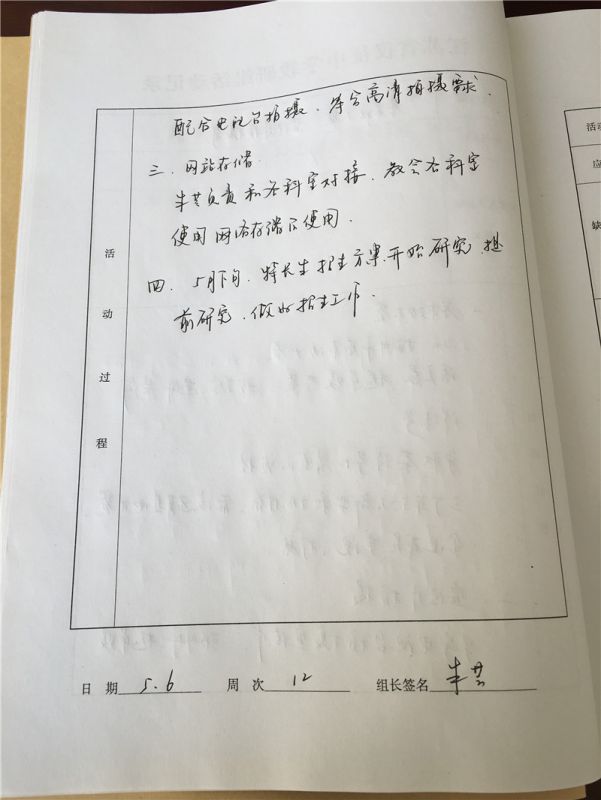 配合电视台拍摄，符合高清拍摄要求．
三．网站存储．
负责和各科室对接，教会各科室
使用网络存储的使用．
四．5月下旬，特长生招生方案开始研究，提
前研究，做好招生工作．
活动过程
日 期 5.6 周 次 12 组长签名
活动
应
缺